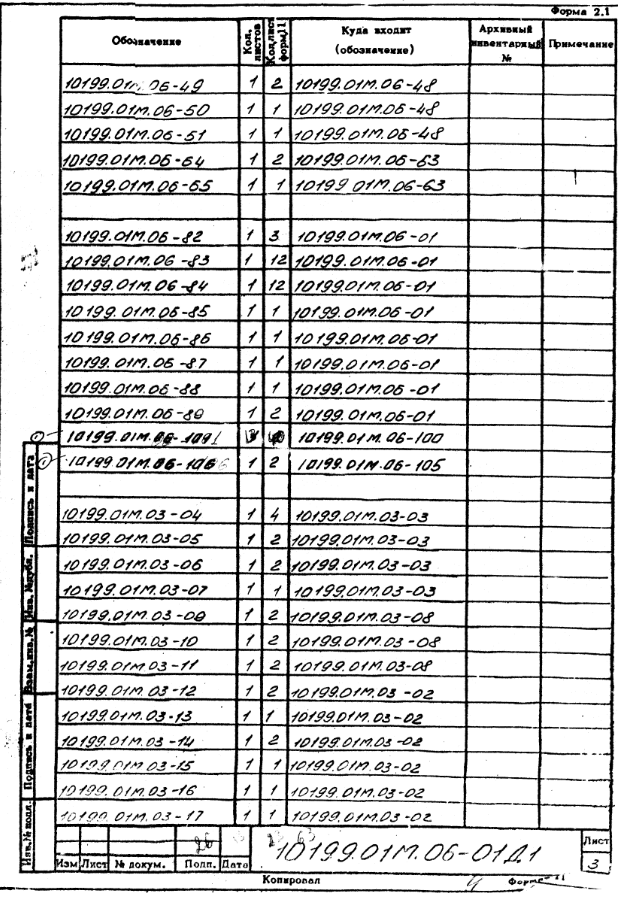 Форма 2.1
Обозначение Кол. листов Кол. лист форм 11 Куда входит (обозначение) Архивный инвентарный № Примечание
10199.01М.06-49 1 2 10199.01М.06-48
10199.01М.06-50 1 1 10199.01М.06-48
10199.01М.06-51 1 1 10199.01М.06-48
10199.01М.06-64 1 2 10199.01М.06-63
10199.01М.06-65 1 1 10199 01М.06-63
10199.01М.06-82 1 3 10199.01М.06-01
10199.01М.06-83 1 12 10199.01М.06-01
10199.01М.06-84 1 12 10199.01М.06-01
10199.01М.06-85 1 1 10199.01М.06-01
10199.01М.06-86 1 1 10199.01М.06-01
10199.01М.06-87 1 1 10199.01М.06-01
10199.01М.06-88 1 1 10199.01М.06-01
10199.01М.06-89 1 2 10199.01М.06-01
10199.01М.06-101 10199.01М.06-100
10199.01М.06-106 1 2 10199.01М.06-105
10199.01М.03-04 1 4 10199.01М.03-03
10199.01М.03-05 1 2 10199.01М.03-03
10199.01М.03-06 1 2 10199.01М.03-03
10199.01М.03-07 1 1 10199.01М.03-03
10199.01М.03-09 1 2 10199.01М.03-08
10199.01М.03-10 1 2 10199.01М.03-08
10199.01М.03-11 1 2 10199.01М.03-08
10199.01М.03-12 1 2 10199.01М.03-02
10199.01М.03-13 1 1 10199.01М.03-02
10199.01М.03-14 1 2 10199.01М.03-02
10199.01М.03-15 1 1 10199.01М.03-02
10199.01М.03-16 1 1 10199.01М.03-02
10199.01М.03-17 1 1 10199.01М.03-02
Подпись и дата
Инв. № дубл.
Взам. инв. №
Подпись и дата
Инв. № подл.
Изм Лист № докум. Подп. Дата
10199.01М.06-01Д1
Лист
3
Копировал